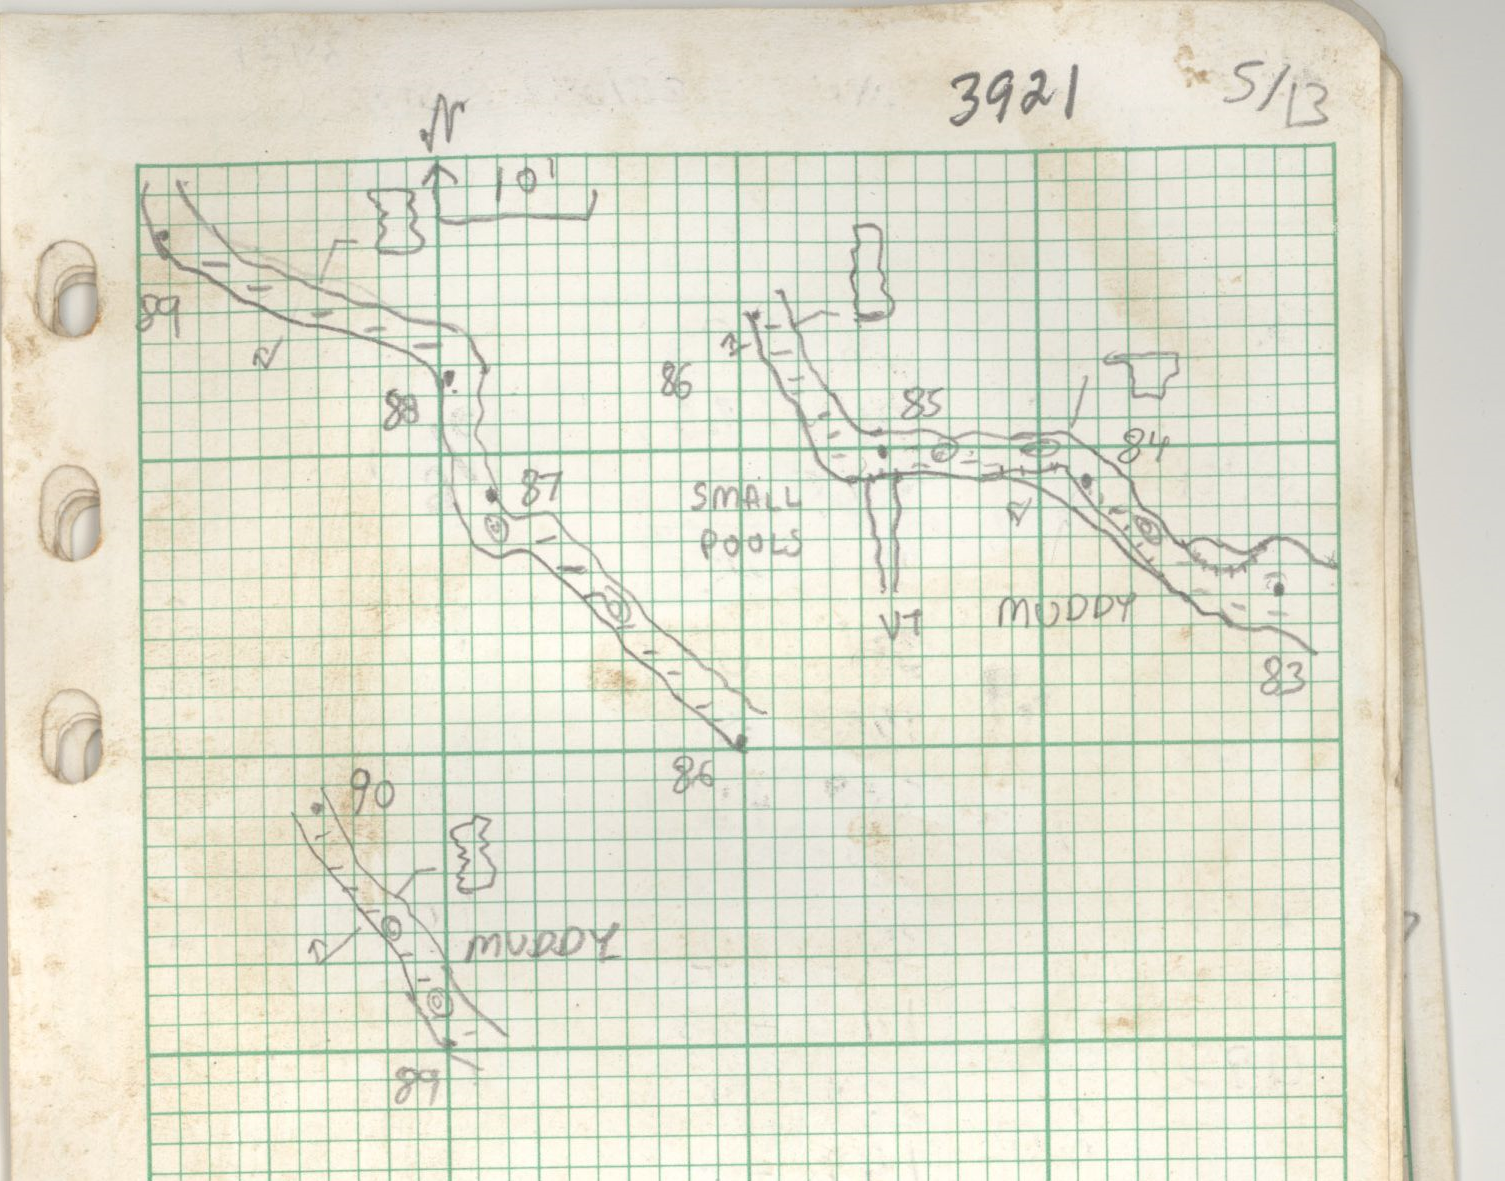 3921 5/13
N
10'
89
88
86
85
84
87
SMALL
POOLS
V7
MUDDY
83
86
90
MUDDY
89